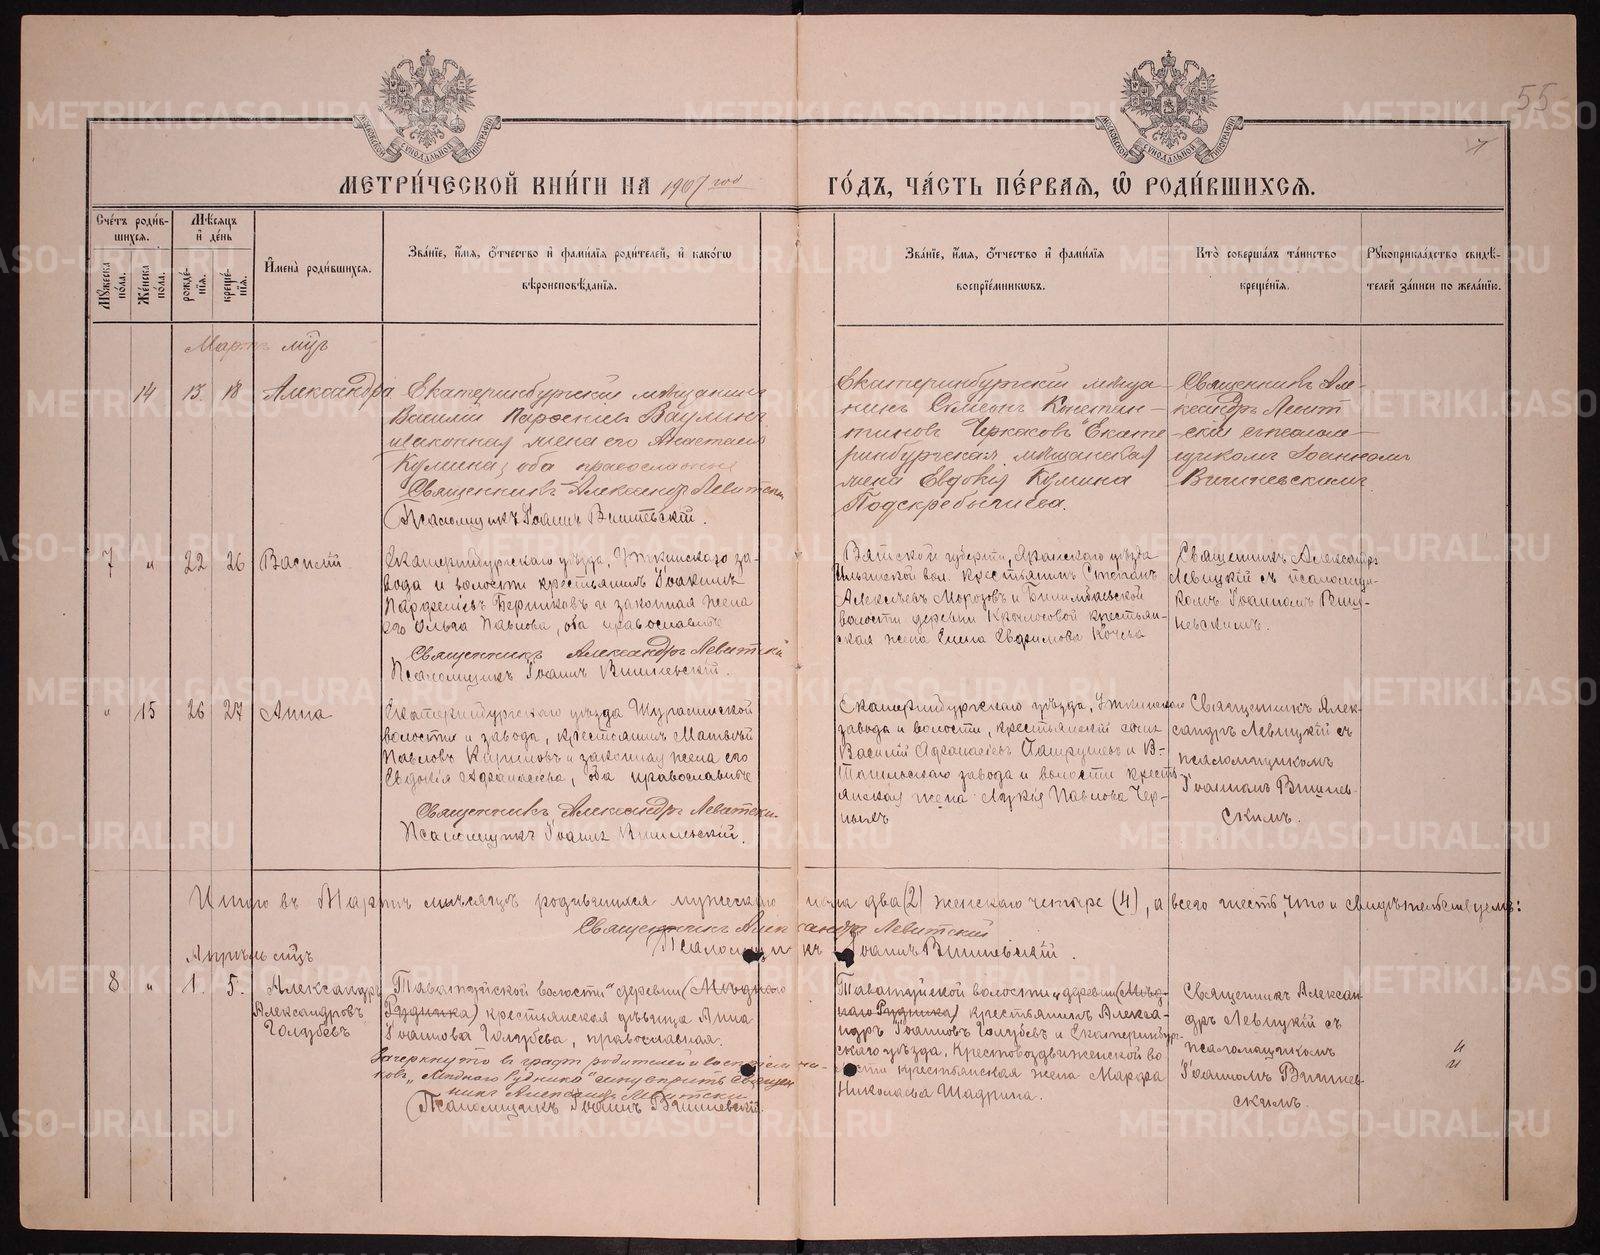 55
МЕТРИ́ЧЕСКОЙ КНИ́ГИ НА 1907 год
ГО́ДЪ, ЧА́СТЬ ПЕ́РВАЯ, Ѡ РОДИ́ВШИХСЯ.
Сче́тъ роди́в-
шихся.
Мѣ́сяцъ
и де́нь
Му́жеска
по́ла.
Же́нска
по́ла.
рожде́-
нія.
креще́-
нія.
Имена̀ роди́вшихся.
Зва́ніе, и́мя, о́тчество и фами́лія роди́телей, и како́гѡ
вѣроисповѣ́данія.
Зва́ніе, и́мя, о́тчество и фами́лія
воспріе́мниковъ.
Кто̀ соверша́лъ та́инство
креще́нія.
Рукоприкла́дство свидѣ́-
телей за́писи по жела́нію.
Мартъ мцъ
14 13 18 Александра
Екатеринбургскій мѣщанинъ
Василій Вауминъ
и законная жена его Анастасія
Кузмина, оба православные
Священникъ Александръ Левитскій
Псаломщикъ Іоаннъ Вишневскій.
Екатеринбургскій мѣща-
нинъ Симеонъ Констан-
тиновъ Черкасовъ и Екате
ринбургская мѣщанская
жена Евдокія Кузмина
Подскребышева.
Священникъ Але-
ксандръ Левит
скій съ псалом-
щикомъ Іоанномъ
Вишневскимъ.
7 " 22 26 Василій
Екатеринбургскаго уѣзда, Уткинскаго за-
вода и волости крестьянинъ Іоакимъ
Парфеніевъ и законная жена
его Ольга Павлова, оба православные
Священникъ Александръ Левитскій
Псаломщикъ Іоаннъ Вишневскій.
Вятской губерніи, Яранскаго уѣзда
вол. крестьянинъ Степанъ
Алексѣевъ Морозовъ и Билимбаевской
волости деревни Крылосовой крестьян-
ская жена Елена Евфимова
Священникъ Александръ
Левицкій съ псаломщи-
комъ Іоанномъ Виш-
невскимъ.
" 15 26 27 Анна
Екатеринбургскаго уѣзда
волости и завода, крестьянинъ Матвѣй
Павловъ и законная жена его
Евдокія Афанасьева, оба православные
Священникъ Александръ Левитскій
Псаломщикъ Іоаннъ Вишневскій.
Екатеринбургскаго уѣзда, Уткинскаго
завода и волости, крестьянскій сынъ
Василій Афанасіевъ и В-
Тагильскаго завода и волости кресть-
янская жена Павлова Чер-
ныхъ
Священникъ Алек-
сандръ Левицкій съ
псаломщикомъ
Іоанномъ Вишнев
скимъ.
Итого въ Мартѣ мѣсяцѣ родившихся мужескаго пола два (2) женскаго четыре (4), а всего шесть, что и свидѣтельствуемъ:
Священникъ Александръ Левитскій
Псаломщикъ Іоаннъ Вишневскій.
Апрѣль мцъ
8 " 1. 5. Александръ
Александровъ
Голубевъ
Таватуйской волости деревни (Мѣднаго
Рудника) крестьянская дѣвица Анна
Іоаннова Голубева, православная.
Зачеркнуто въ графѣ родителей и воспріемни-
ковъ "Мѣднаго Рудника" Священ
никъ Александръ Левитскій
Псаломщикъ Іоаннъ Вишневскій.
Таватуйской волости деревни (Мѣд-
наго Рудника) крестьянинъ Алекса-
ндръ Іоанновъ Голубевъ и Екатеринбур-
скаго уѣзда, Крестовоздвиженской во
лости крестьянская жена Марфа
Николаева Шадрина.
Священникъ Алексан
дръ Левицкій съ
псаломщикомъ
Іоанномъ Вишнев-
скимъ.